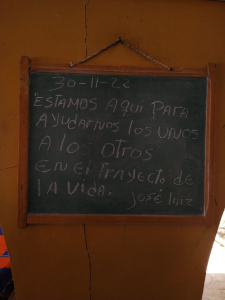 30-11-22
"ESTAMOS AQUI PARA
AYUDARNOS LOS UNOS
A LOS OTROS
EN EL TRAYECTO DE
LA VIDA.
JOSÉ LUIZ